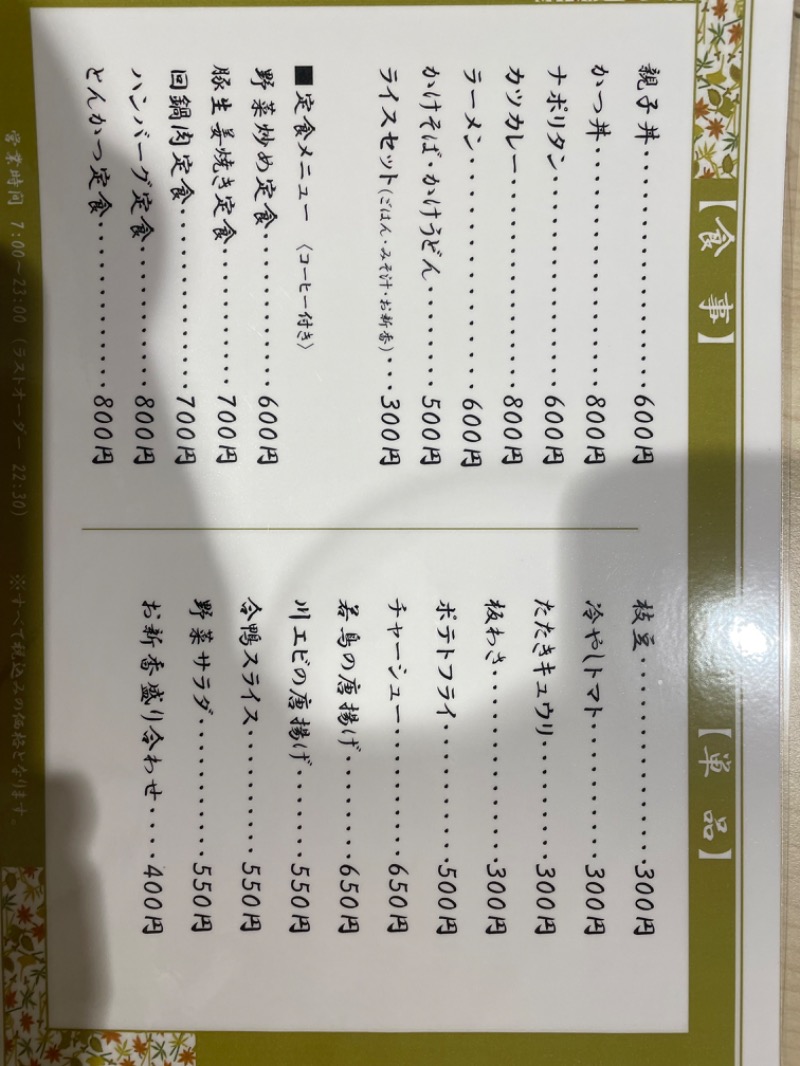 【食事】
親子丼・・・・・・・・・・・・・・600円
かつ丼・・・・・・・・・・・・・・800円
ナポリタン・・・・・・・・・・・・600円
カツカレー・・・・・・・・・・・・800円
ラーメン・・・・・・・・・・・・・600円
かけそば・かけうどん・・・・・・・500円
ライスセット(ごはん・みそ汁・お新香)・・300円
■定食メニュー 〈コーヒー付き〉
野菜炒め定食・・・・・・・・・・・600円
豚生姜焼き定食・・・・・・・・・・700円
回鍋肉定食・・・・・・・・・・・・700円
ハンバーグ定食・・・・・・・・・・800円
とんかつ定食・・・・・・・・・・・800円
【単品】
枝豆・・・・・・・・・・・・・・・300円
冷やしトマト・・・・・・・・・・・300円
たたきキュウリ・・・・・・・・・・300円
板わさ・・・・・・・・・・・・・・300円
ポテトフライ・・・・・・・・・・・500円
チャーシュー・・・・・・・・・・・650円
若鳥の唐揚げ・・・・・・・・・・・650円
川エビの唐揚げ・・・・・・・・・・550円
合鴨スライス・・・・・・・・・・・550円
野菜サラダ・・・・・・・・・・・・550円
お新香盛り合わせ・・・・400円
営業時間 7:00~23:00 (ラストオーダー 22:30) ※すべて税込みの価格となります。